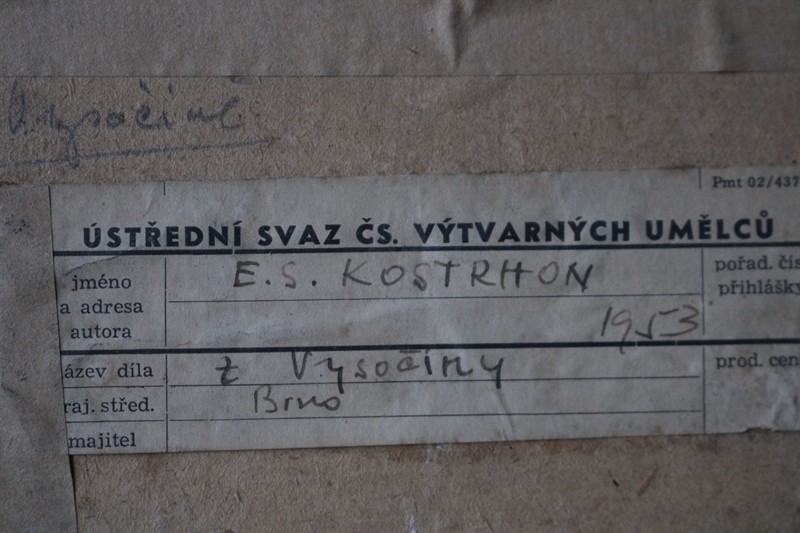 Vysočině
Pmt 02/437
ÚSTŘEDNÍ SVAZ ČS. VÝTVARNÝCH UMĚLCŮ
jméno
a adresa
autora
E. S. KOSTRHON
1953
pořad. čís
přihlášky
ázev díla
z Vysočiny
prod. cen
raj. střed.
Brno
majitel